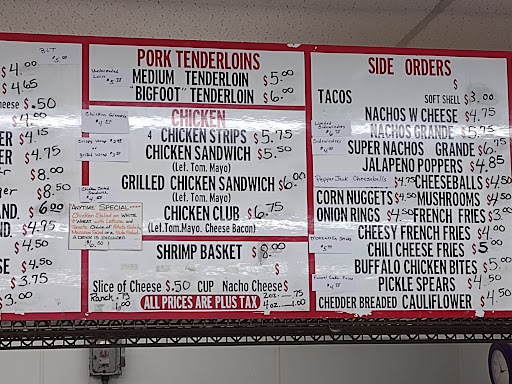 BLT
$4.00
$4.65
heese $.50
$4.00
ER $4.15
ER $4.75
er $8.00
ger $8.50
ND. $6.00
AND. $4.95
$4.50
se $4.50
$3.75
$3.00
PORK TENDERLOINS
MEDIUM TENDERLOIN $5.00
"BIGFOOT" TENDERLOIN $6.00
CHICKEN
4 CHICKEN STRIPS $5.75
CHICKEN SANDWICH $5.50
(Let. Tom. Mayo)
GRILLED CHICKEN SANDWICH $6.00
(Let. Tom. Mayo)
CHICKEN CLUB $6.75
(Let.Tom.Mayo, Cheese Bacon)
Crispy Wrap
or
grilled wrap
ANYTIME SPECIAL
Chicken Salad on WHITE
or WHEAT with Lettuce and
Tomato. Choice of Potato Salad,
Macaroni Salad or
A DRINK IS INCLUDED
$6.50
SHRIMP BASKET $8.00
Slice of Cheese $.50 CUP Nacho Cheese $
Ranch .75
1.00
2oz .75
4oz 1.00
ALL PRICES ARE PLUS TAX
SIDE ORDERS
$
TACOS SOFT SHELL $3.00
NACHOS W CHEESE $4.75
NACHOS GRANDE $5.75
SUPER NACHOS GRANDE $6.75
JALAPENO POPPERS $4.85
PepperJack Cheeseballs $4.75 CHEESEBALLS $4.50
CORN NUGGETS $4.50 MUSHROOMS $4.50
ONION RINGS $4.50 FRENCH FRIES $3.00
CHEESY FRENCH FRIES $4.00
CHILI CHEESE FRIES $5.00
BUFFALO CHICKEN BITES $5.00
PICKLE SPEARS $4.50
CHEDDER BREADED CAULIFLOWER $4.50
Funnel Cake Fries